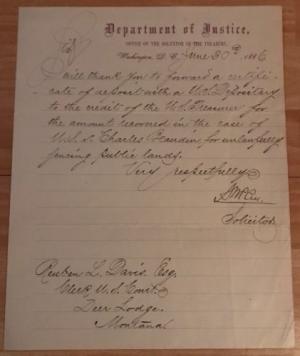 Department of Justice,
OFFICE OF THE SOLICITOR OF THE TREASURY,
Washington, D. C., June 30th, 1886
Sir:
I will thank you to forward a certifi-
cate of deposit with a U.S. Depositary
to the credit of the U.S. Treasurer for
the amount recovered in the case of
U.S. v. Charles for unlawfully
fencing public lands.
Very respectfully,
Solicitor
Reuben L. Davis Esq.
Clerk U.S. Court.
Deer Lodge.
Montana.